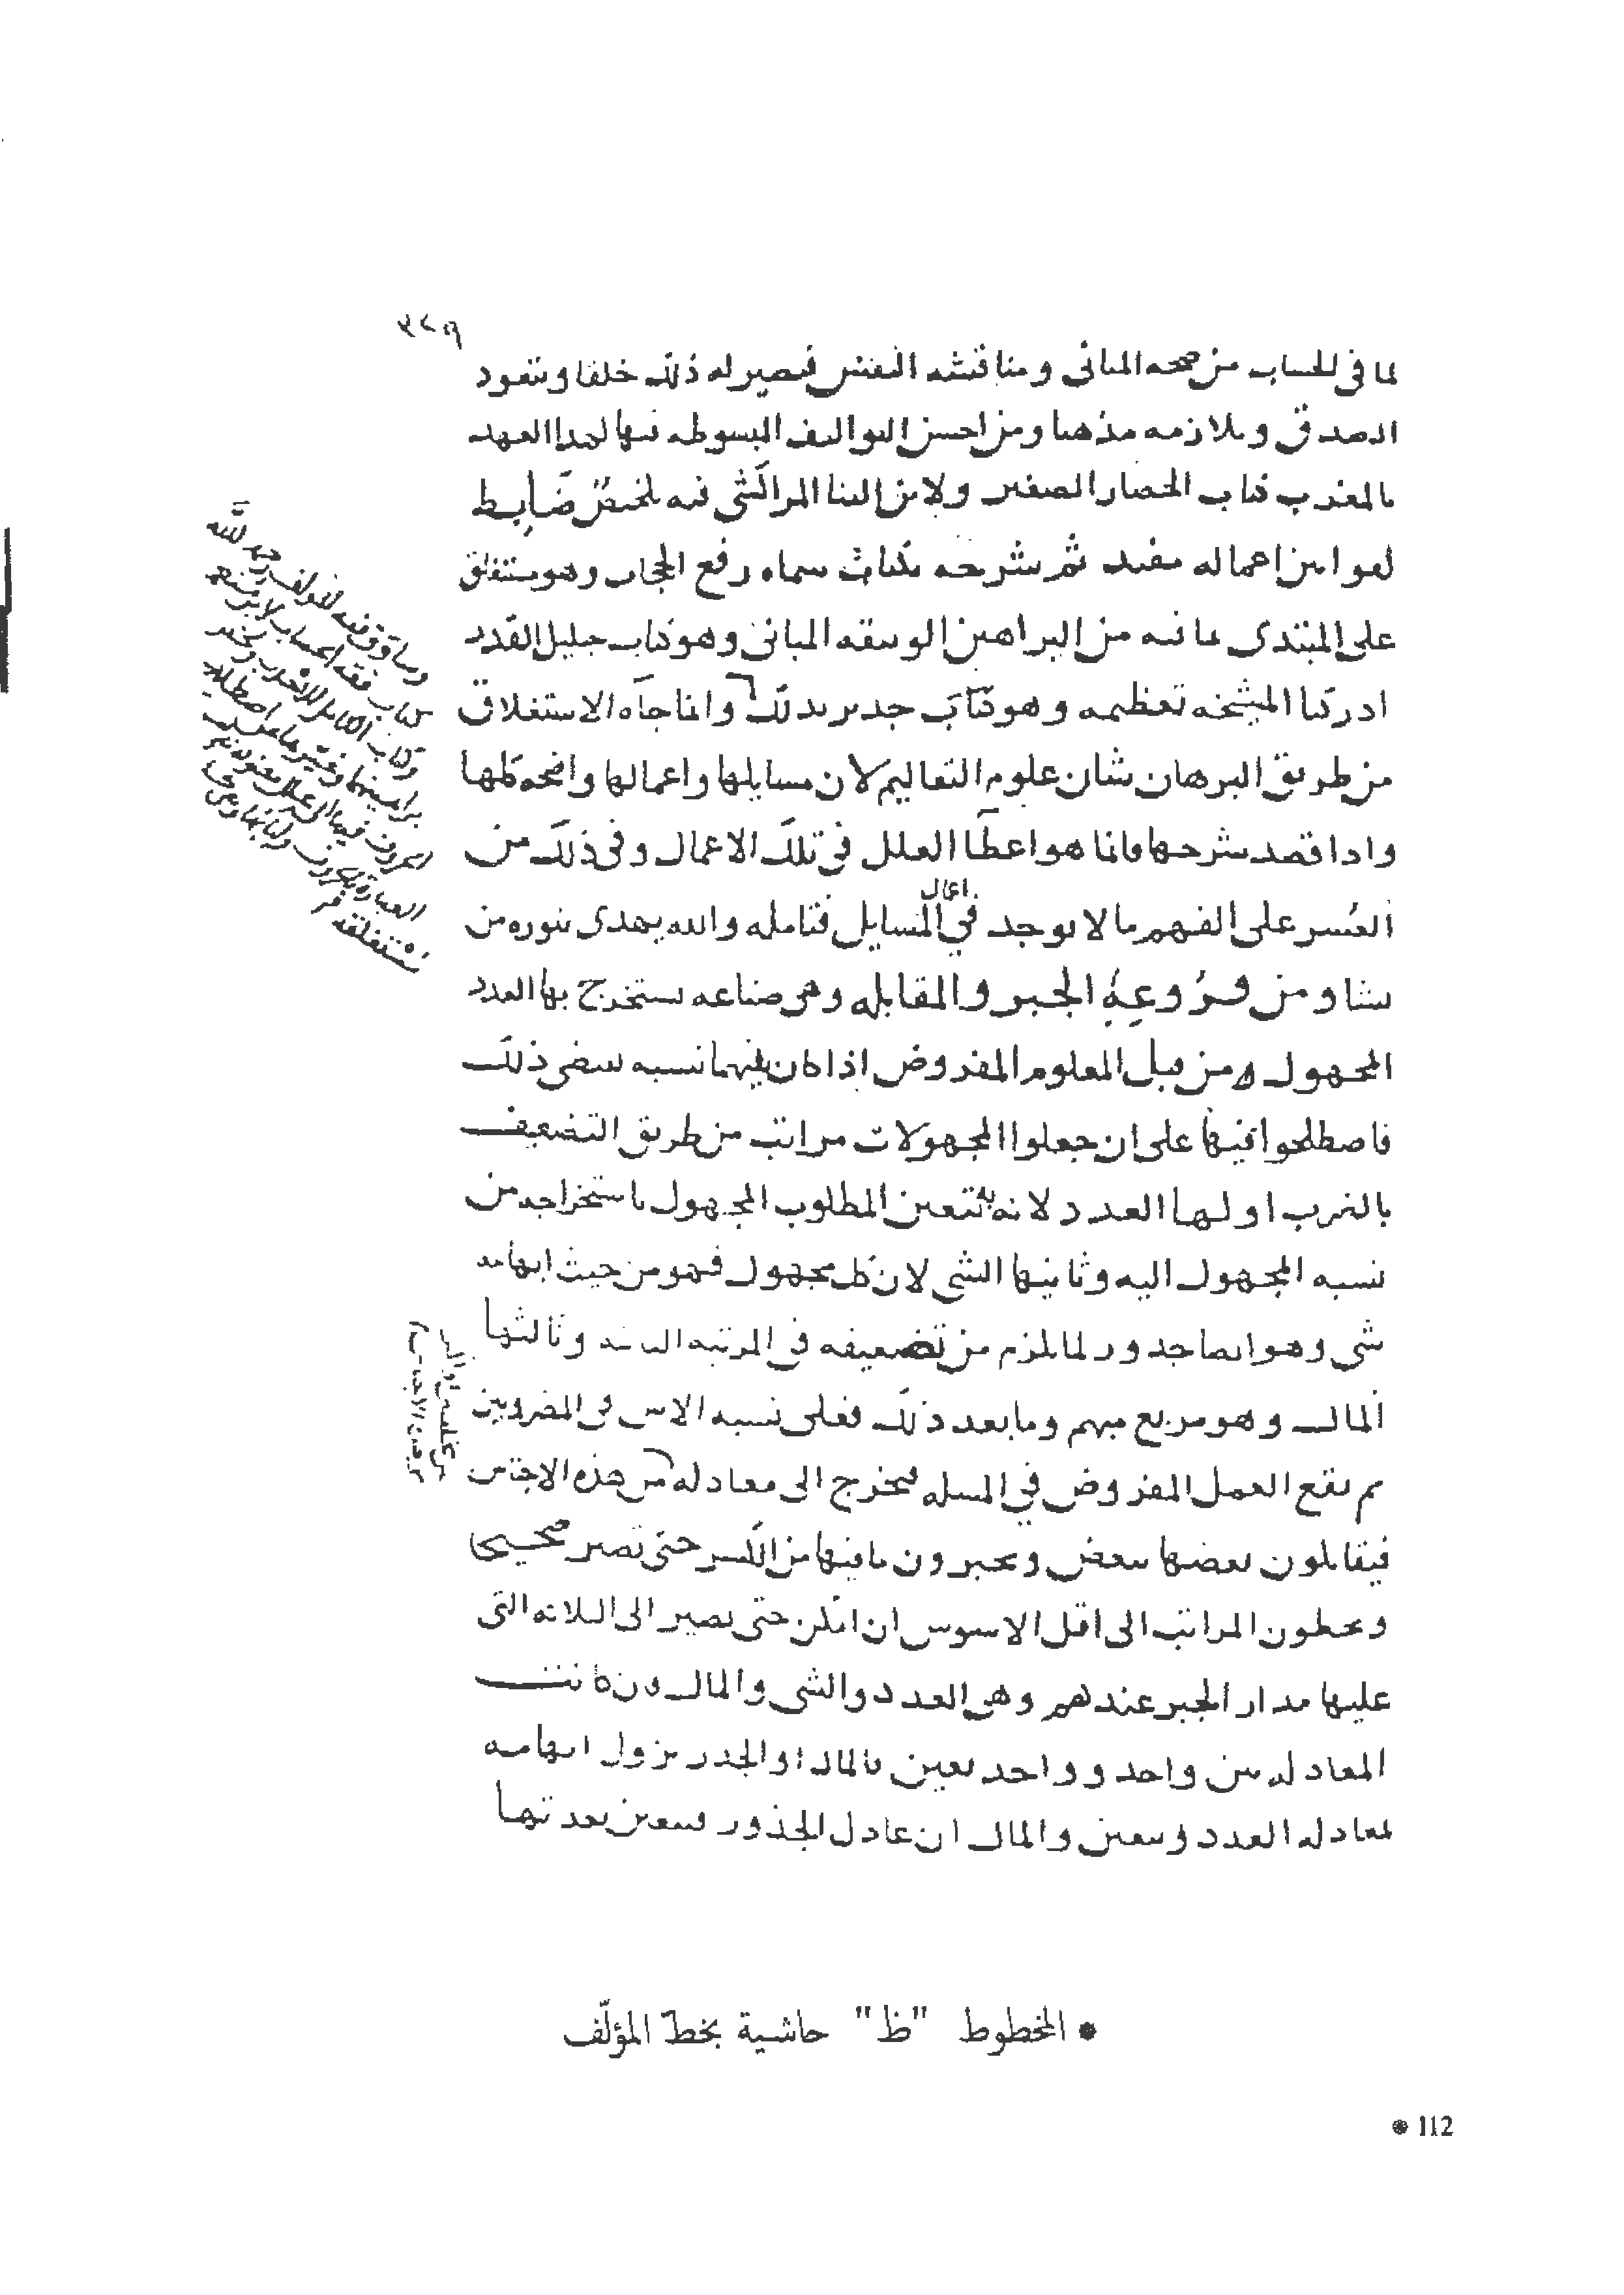 ٣٢٩
لما في الحساب من صحه المباني ومناقشه النفس فيصير له ذلك خلقا ويتعود
الصدق ويلازمه مذهبا ومن احسن التواليف المبسوطه فيها لهذا العهد
بالمغرب كتاب الحصار الصغير ولابن البنا المراكشي فيه تلخيص ضابط
لقوانين اعماله مفيد ثم شرحه بكتاب سماه رفع الحجاب وهو مستغلق
على المبتدى بما فيه من البراهين الوثيقه المباني وهو كتاب جليل القدر
ادركنا المشيخه تعظمه وهو كتاب جدير بذلك وانما جاه الاستغلاق
من طريق البرهان شان علوم التعاليم لان مسايلها واعمالها واضحه كلها
واذا قصد شرحها فانما هو اعطا العلل في تلك الاعمال وفي ذلك من
العسر على الفهم ما لا يوجد في اعمال المسايل فتامله والله يهدى بنوره من
يشا ومن فروعه الجبر والمقابله وهى صناعه يستخرج بها العدد
المجهول من قبل المعلوم المفروض اذا كان بينهما نسبه تقضى ذلك
فاصطلحوا فيها على ان جعلوا المجهولات مراتب من طريق التضعيف
بالضرب اولها العدد لانه به يتعين المطلوب المجهول باستخراجه من
نسبه المجهول اليه وثانيها الشى لان كل مجهول فهو من حيث ابهامه
شى وهو ايضا جدر لما يلزم من تضعيفه في المرتبه الثانيه وثالثها
المال وهو مربع مبهم وما بعد ذلك فعلى نسبه الاس في المضروبين
ثم يقع العمل المفروض في المسله فيخرج الى معادله من هذه الاجناس
فيقابلون بعضها ببعض ويجبرون ما فيها من الكسر حتى تصير صحيحا
ويحطون المراتب الى اقل الاسوس ان امكن حتى يصير الى الثلاثه التى
عليها مدار الجبر عندهم وهى العدد والشى والمال فان كانت
المعادله بين واحد وواحد تعين فالمال او الجدر يزول ابهامه
لمعادله العدد ويتعين والمال ان عادل الجذور فيتعين بعدتها
وساوق فيه المولف رحمه الله
كتاب فقه الحساب لابن منعم
وكتاب الكامل للاحدب ولخص
براهينهما وغيرهما عن اصطلاح
الحروف فيها الى علل معنويه
* المخطوط "ظ" حاشية بخطّ المؤلّف
* 112